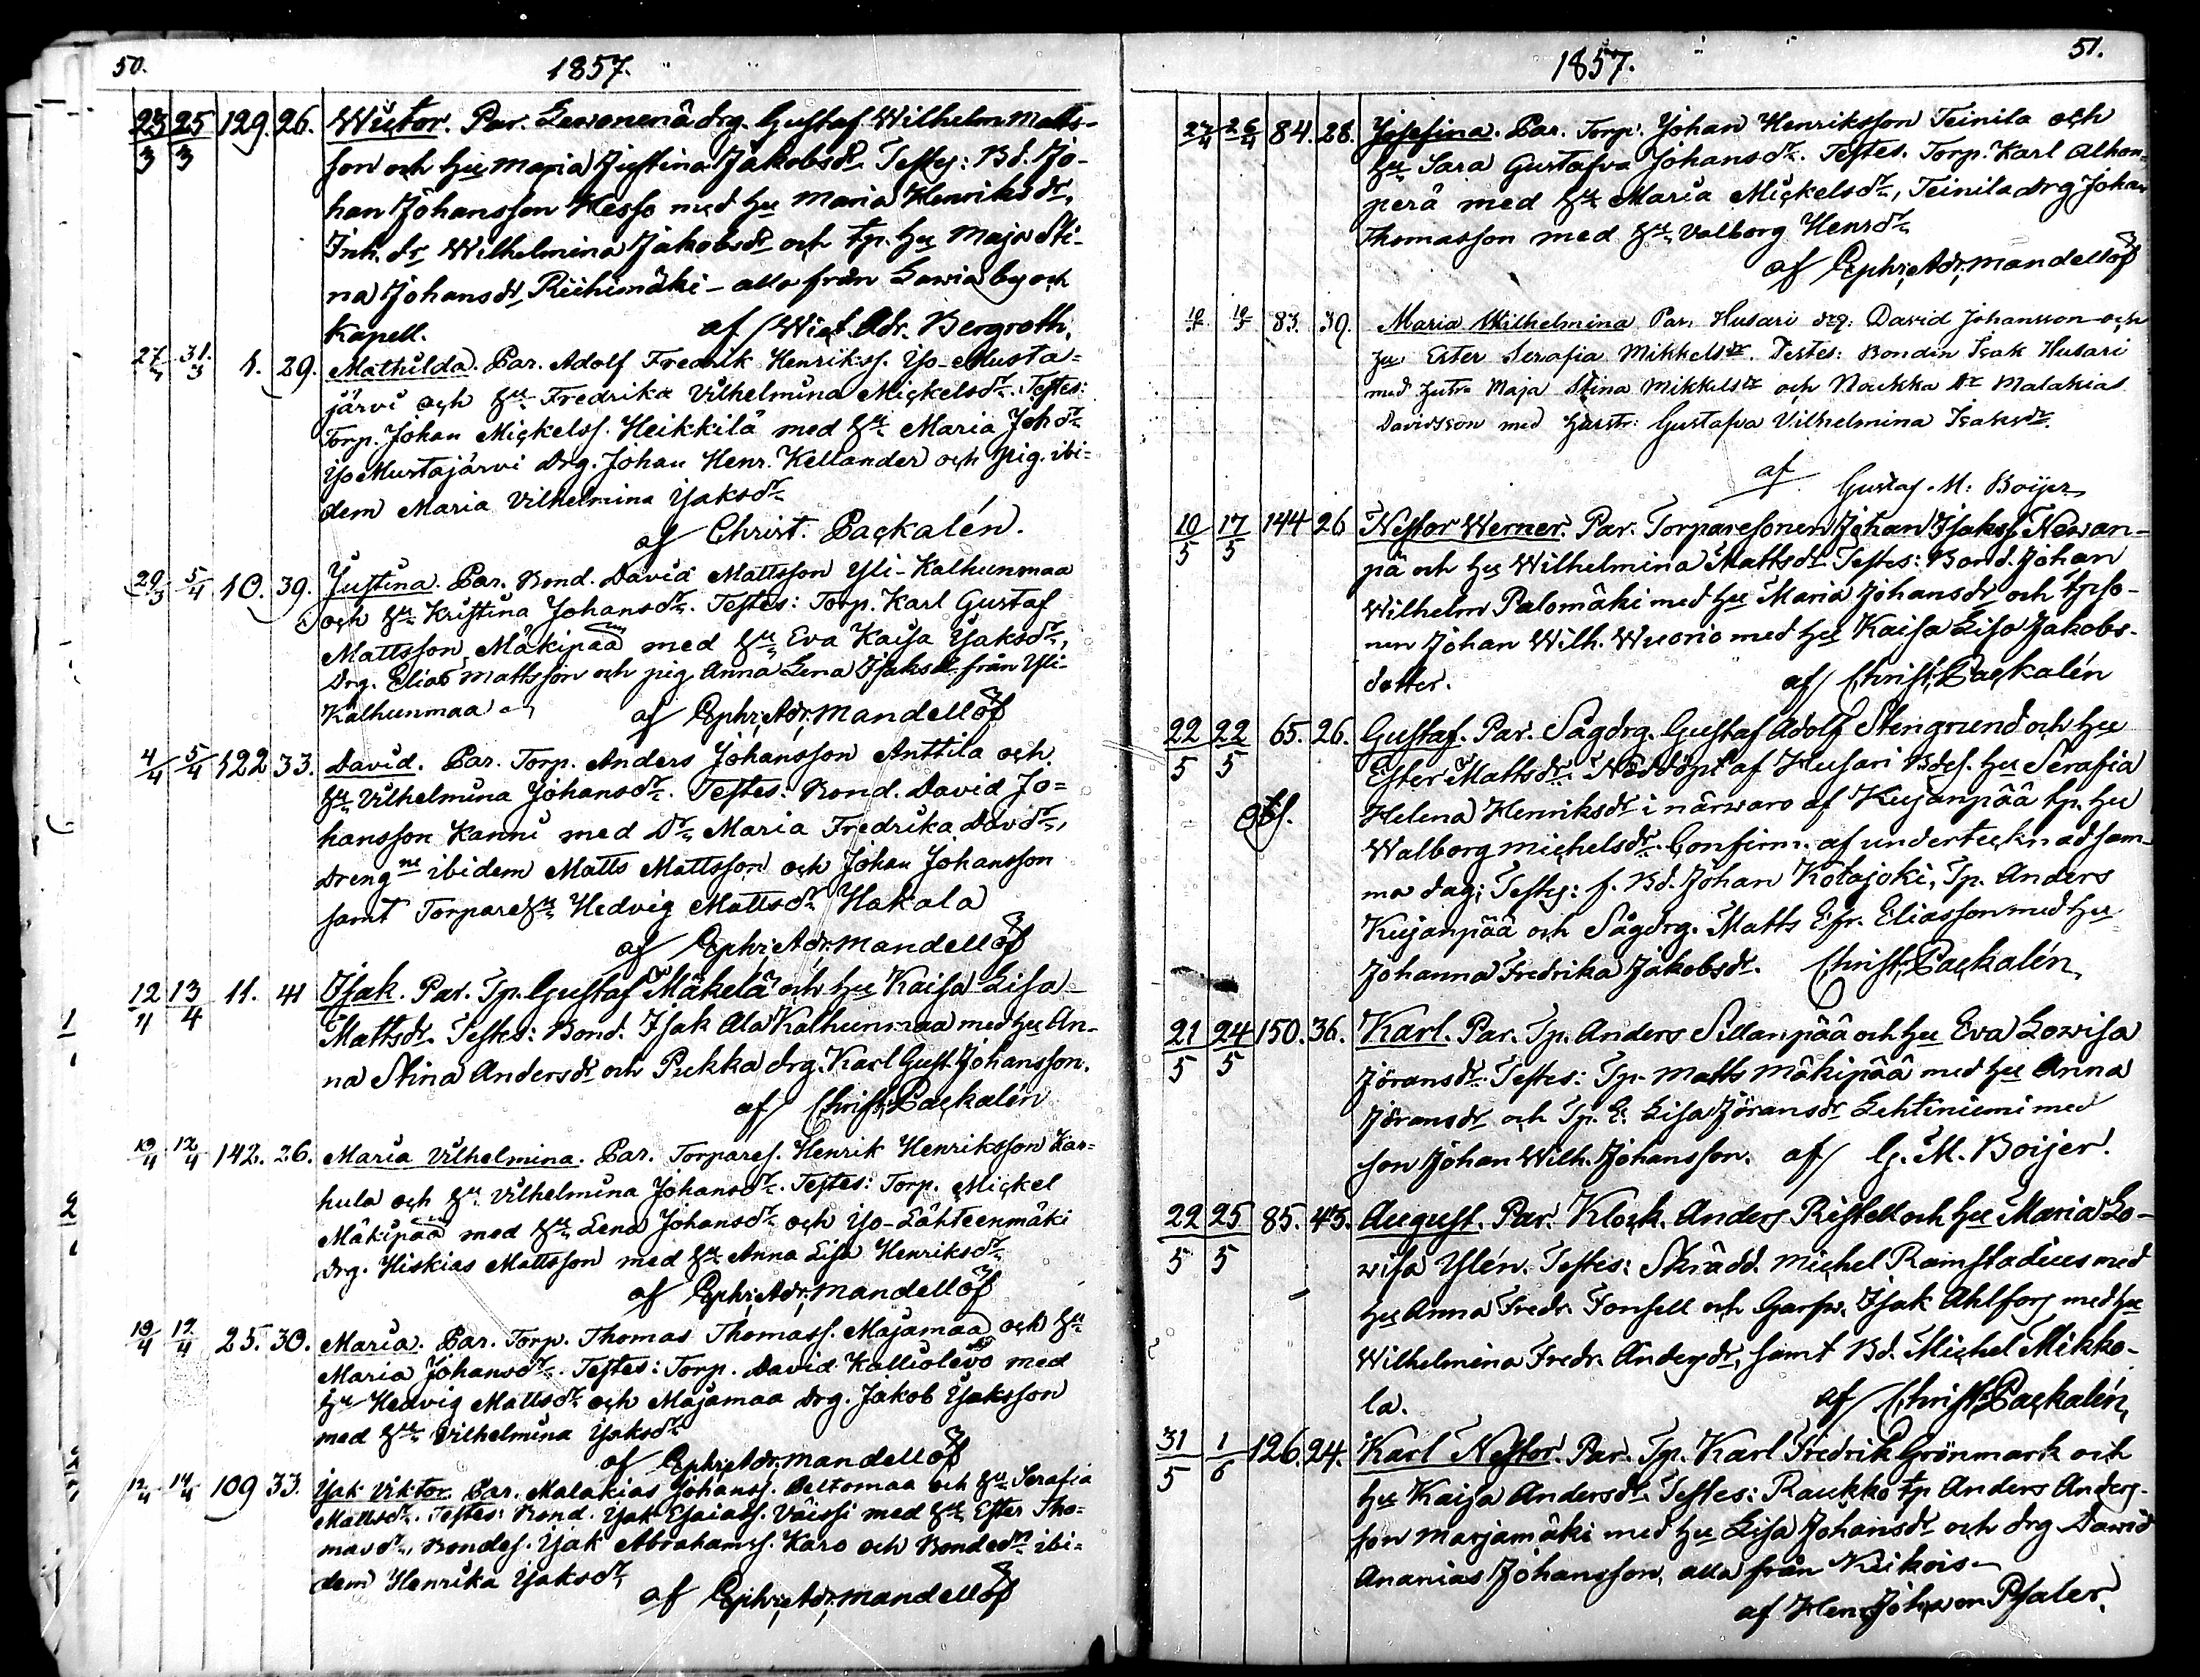 50.
1857.
23/3 25/3 129. 26. Wictor. Par. Lewonenä drg. Gustaf Wilhelm Matts-
son och hu Maria Justina Jakobsdr. Testes: Bd. Jo-
han Johansson Hesso med hu Maria Henriksdr,
Inh. dr Wilhelmina Jakobsdr och tp. hu Maja Sti-
na Johansdr Riihimäki – alla från Lawia by och
Kapell. af Wict. Adr. Bergroth.
27/3 31/3 1. 29. Mathilda. Par. Adolf Fredrik Henrikss. Iso-Musta=
järvi och hu Fredrika Vilhelmina Mickelsdr. Testes:
Torp. Johan Mickelss. Heikkilä med hu Maria Johdr
Iso Mustajärvi drg. Johan Henr. Kellander och pig. ibi=
dem Maria Vilhelmina Isaksdr
af Christ. Packalén.
29/3 5/4 10. 39. Justina. Par. Bond. David Mattsson Yli-Kalhunmaa
och hu Kristina Johansdr. Testes: Torp. Karl Gustaf
Mattsson Mäkipää med hu Eva Kaisa Isaksdr,
Drg. Elias Mattsson och pig Anna Lena Isaksdr från Yli-
Kalhunmaa af Ephr. Adr. Mandellöf
4/4 5/4 122 33. David. Par. Torp. Anders Johansson Anttila och
hu Vilhelmina Johansdr. Testes: Bond. David Jo=
hansson Kanni med Dr Maria Fredrika Davdr,
Drengne ibidem Matts Mattsson och Johan Johansson
samt Torparehu Hedvig Mattsdr Hakala
af Ephr. Adr. Mandellöf
12/4 13/4 11. 41 Isak. Par. Tp. Gustaf Mäkelä och hu Kaisa Lisa
Mattsdr. Testes: Bond. Isak Ala Kalhunmaa med hu An-
na Stina Andersdr och Pukka drg. Karl Gust. Johansson.
af Christ. Packalén
10/4 12/4 142. 26. Maria Vilhelmina. Par. Torpares. Henrik Henriksson Kar=
hula och hu Vilhelmina Johansdr. Testes: Torp. Mickel
Mäkipää med hu Lena Johansdr och Iso-Lähteenmäki
drg. Hiskias Mattsson med hu Anna Lisa Henriksdr
af Ephr. Adr. Mandellöf
10/4 12/4 25. 30. Maria. Par. Torp. Thomas Thomass. Majamaa och hu
Maria Johansdr. Testes: Torp. David Kalliolevo med
hu Hedvig Mattsdr och Majamaa drg. Jakob Isaksson
med hu Vilhelmina Isaksdr
af Ephr. Adr. Mandellöf
12/4 14/4 109 33. Isak Viktor. Par. Malakias Johanss. Peltomaa och hu Serafia
Mattsdr. Testes: Bond. Isak Esaiass. Väissi med hu Ester Tho=
masdr, Bondes. Isak Abrahamss. Karo och Bondedr ibi=
dem Henrika Isaksdr
af Ephr. Adr. Mandellöf
1857.
51.
84. 28. Josefina. Par. Torp. Johan Henriksson Teinila och
hu Sara Gustafva Johansdr. Testes. Torp. Karl Alhon=
perä med hu Maria Mickelsdr, Teinila drg Johan
Thomasson med hu Valborg Henrdr
af Ephr. Adr. Mandellöf
83. 39. Maria Wilhelmina Par. Husari drg: David Johansson och
hu Ester Serafia Mikkelsdr. Testes: Bonden Isak Husari
med hustr. Maja Stina Mikkelsdr och Noukka dr Malakias
Davidsson med hustr: Gustafva Vilhelmina Isaksdr.
af Gustaf. M: Boijer
10/5 17/5 144 26 Nestor Werner. Par. Torparesonen Johan Isakss. Newan-
pä och hu Wilhelmina Mattsdr. Testes: Bond. Johan
Wilhelm Palomäki med hu Maria Johansdr och tpso-
nen Johan Wilh. Wuorio med hu Kaisa Lisa Jakobs-
dotter. af Christ. Packalén
22/5 22/5 65. 26. Gustaf. Par. Sågdrg. Gustaf Adolf Stengrund och hu
Ester Mattsdr. Nöddöpt af Husari Bdes. hu Serafia
Helena Henriksdr i närwaro af Kujanpää tp. hu
Walborg Michelsdr. Confirm. af undertecknad sam-
ma dag; Testes: f. Bd. Johan Kotajoki, Tp. Anders
Kujanpää och Sågdrg. Matts Efr. Eliasson med hu
Johanna Fredrika Jakobsdr. Christ. Packalén
21/5 24/5 150. 36. Karl. Par. Tp. Anders Sillanpää och hu Eva Lowisa
Jöransdr. Testes: Tp. Matts Mäkipää med hu Anna
Jöransdr och Tp. E. Lisa Jöransdr Lehtiniemi med
son Johan Wilh. Johansson. af G. M. Boijer.
22/5 25/5 85. 43. August. Par. Klock. Anders Ristell och hu Maria Lo-
wisa Ylén. Testes: Skrädd. Michel Ramstadius med
hu Anna Fredr. Fonsell och Garfw. Isak Ahlfors med hu
Wilhelmina Fredr. Andersdr, samt Bd. Michel Mikko-
la. af Christ. Packalén,
31/5 1/6 126. 24. Karl Nestor. Par. Tp. Karl Fredrik Grönmark och
hu Kaisa Andersdr. Testes: Raukko tp Anders Anders-
son Marjamäki med hu Lisa Johansdr och drg David
Ananias Johansson, alla från Kikois
af Hen. Johan Psaler.